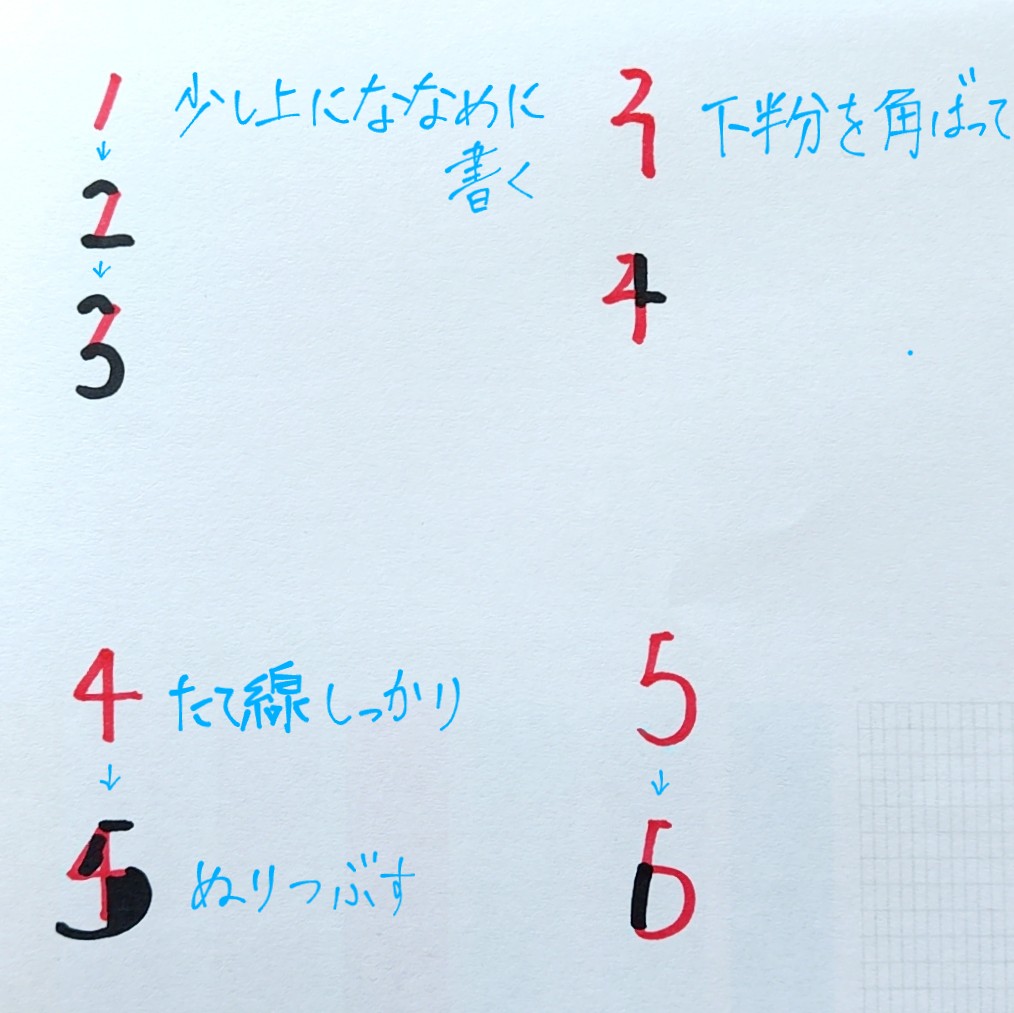 1 少し上にななめに
書く
↓
2
↓
3
3 下半分を角ばって
4
4 たて線しっかり
↓
5 ぬりつぶす
5
↓
6